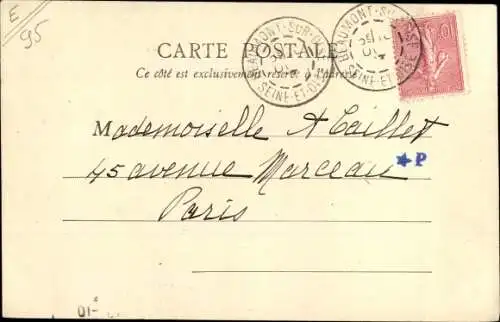 E
95
CARTE POSTALE
Ce côté est exclusivement réservé à l'adresse
BEAUMONT-SUR-OISE
SEINE-ET-OISE
BEAUMONT-SUR-OISE
SEINE-ET-OISE
10
Mademoiselle A Caillet
★P
45 avenue Marceau
Paris
10-